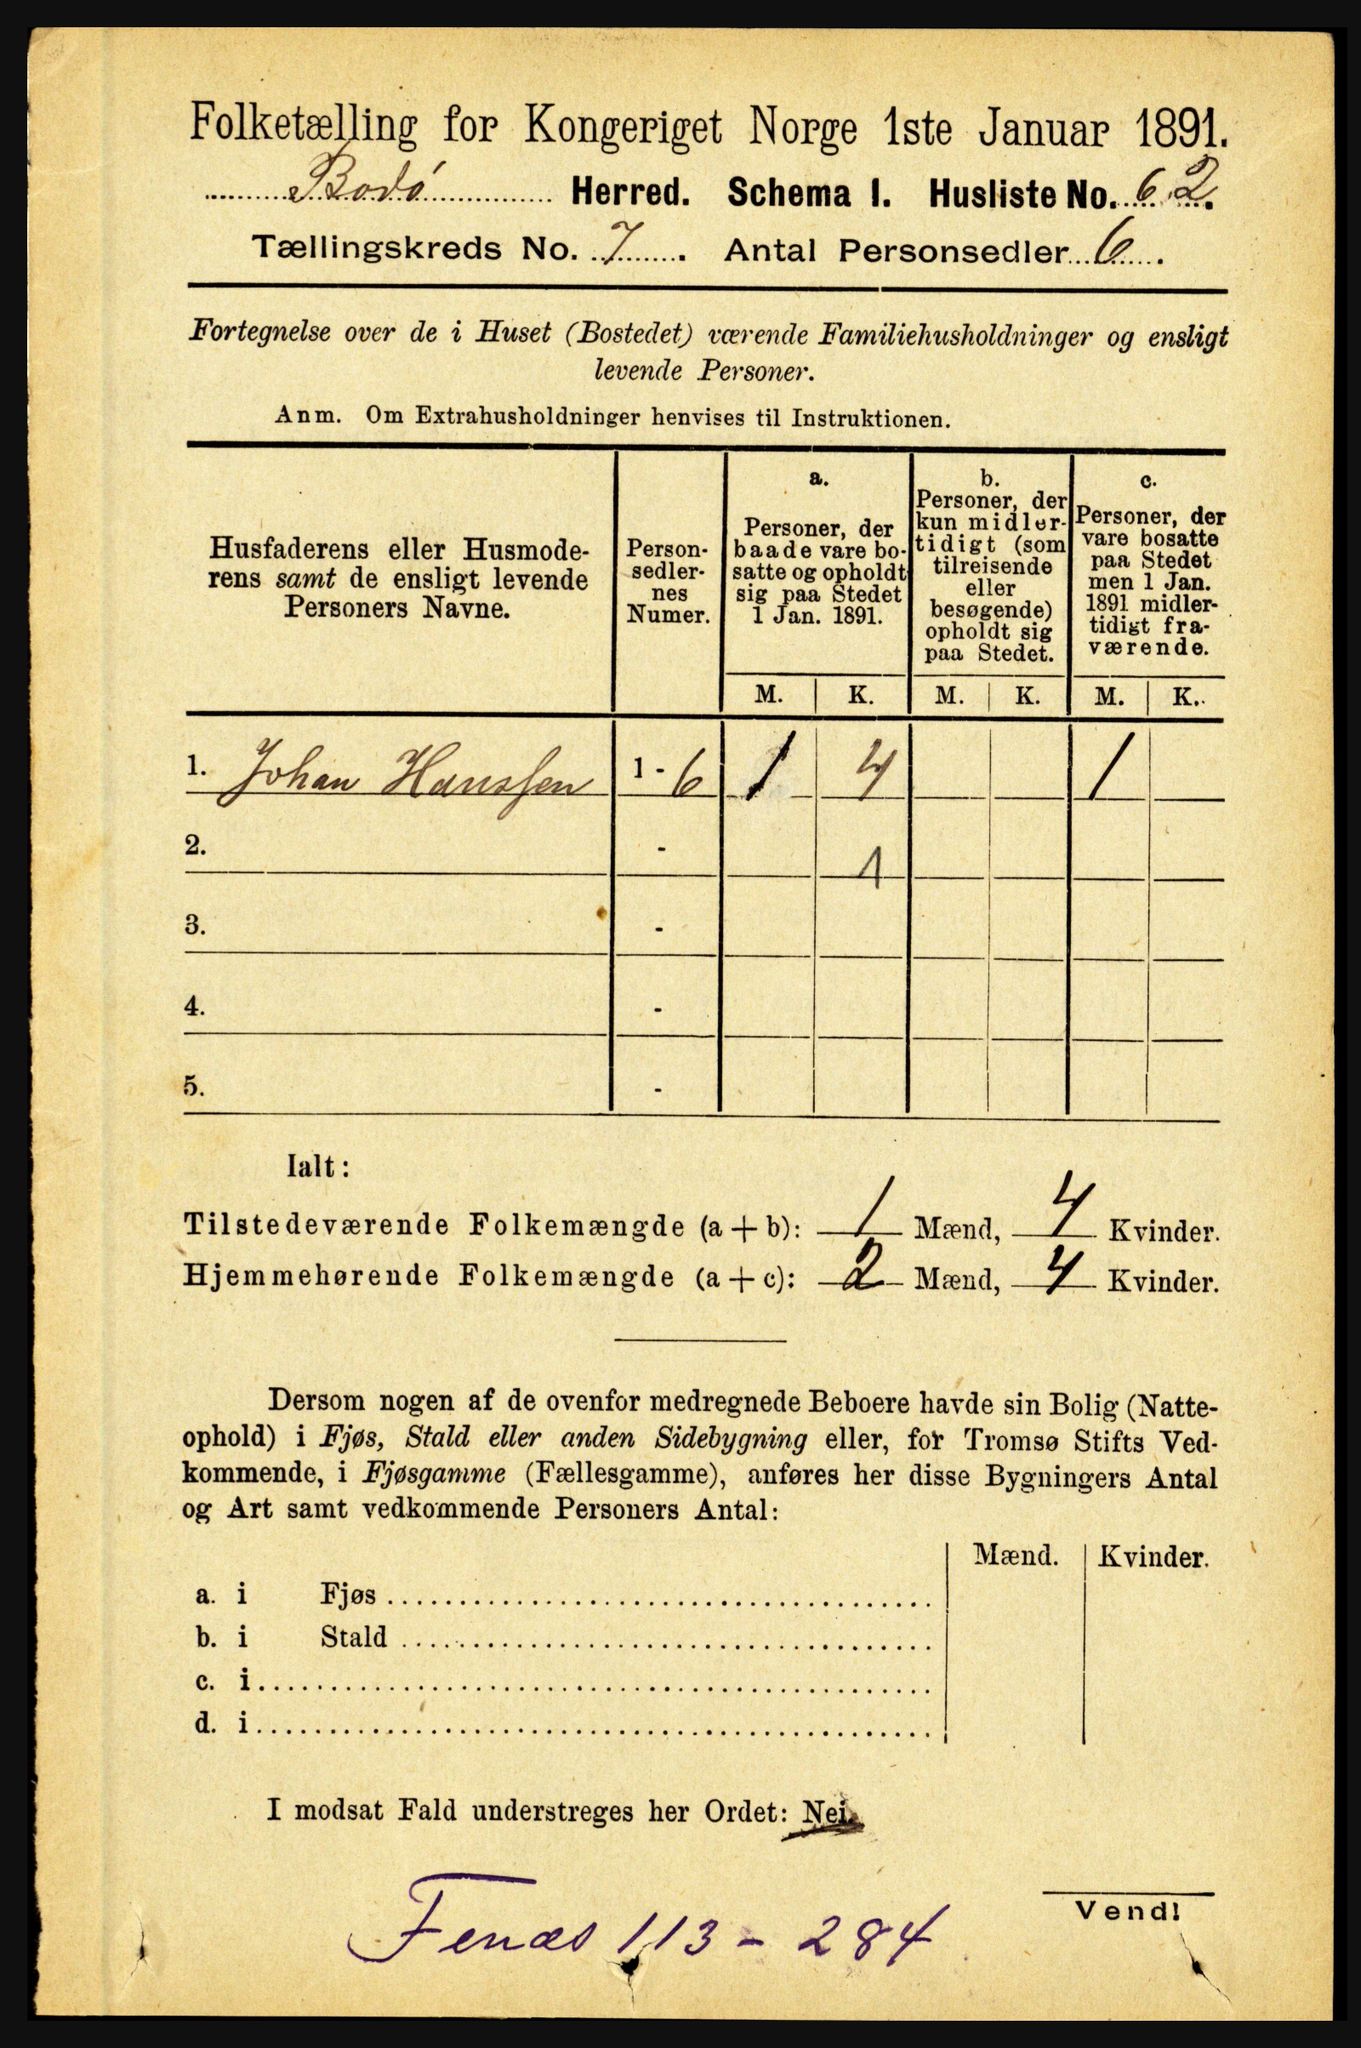 Folketælling for Kongeriget Norge 1ste Januar 1891.
Bodø Herred. Schema I. Husliste No. 62.
Tællingskreds No. 7. Antal Personsedler 6.
Fortegnelse over de i Huset (Bostedet) værende Familiehusholdninger og ensligt
levende Personer.
Anm. Om Extrahusholdninger henvises til Instruktionen.
Husfaderens eller Husmode-
rens samt de ensligt levende
Personers Navne.
Person-
sedler-
nes
Numer.
a.
Personer, der
baade vare bo-
satte og opholdt
sig paa Stedet
1 Jan. 1891.
b.
Personer, der
kun midler-
tidigt (som
tilreisende
eller
besøgende)
opholdt sig
paa Stedet.
c.
Personer, der
vare bosatte
paa Stedet
men 1 Jan.
1891 midler-
tidigt fra-
værende.
M. K. M. K. M. K.
1. Johan Hanssen 1 - 6 1 4 1
2. - 1
3. -
4. -
5. -
Ialt:
Tilstedeværende Folkemængde (a + b): 1 Mænd, 4 Kvinder.
Hjemmehørende Folkemængde (a + c): 2 Mænd, 4 Kvinder.
Dersom nogen af de ovenfor medregnede Beboere havde sin Bolig (Natte-
ophold) i Fjøs, Stald eller anden Sidebygning eller, for Tromsø Stifts Ved-
kommende, i Fjøsgamme (Fællesgamme), anføres her disse Bygningers Antal
og Art samt vedkommende Personers Antal:
Mænd. Kvinder.
a. i Fjøs
b. i Stald
c. i
d. i
I modsat Fald understreges her Ordet: Nei.
Vend!
Fenæs 113 - 284